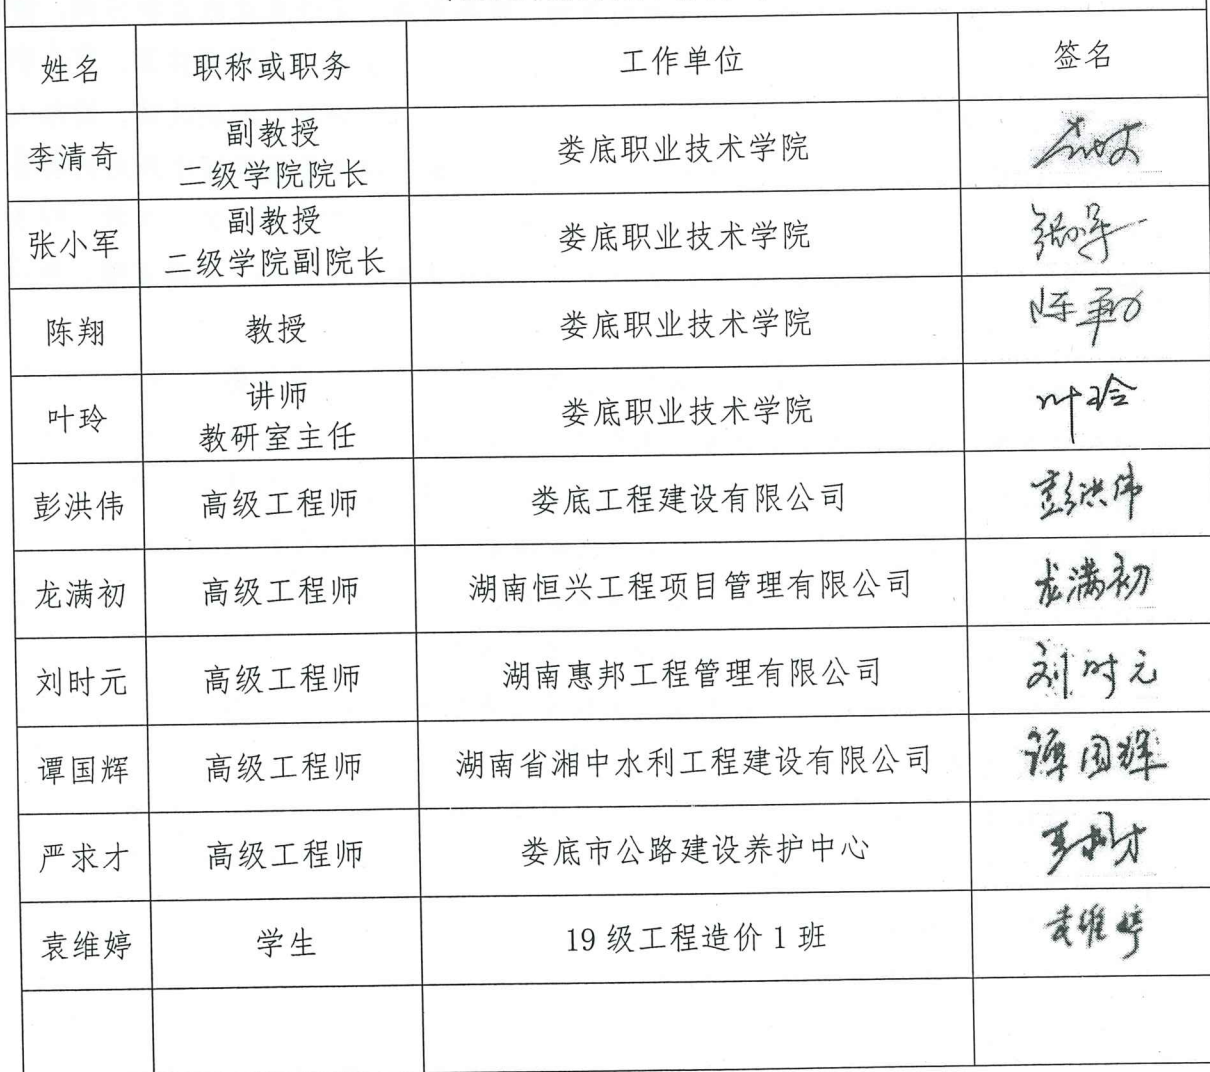 姓名 职称或职务 工作单位 签名
李清奇 副教授 娄底职业技术学院
二级学院院长
张小军 副教授 娄底职业技术学院 张小军
二级学院副院长
陈翔 教授 娄底职业技术学院 陈翔
叶玲 讲师 娄底职业技术学院 叶玲
教研室主任
彭洪伟 高级工程师 娄底工程建设有限公司 彭洪伟
龙满初 高级工程师 湖南恒兴工程项目管理有限公司 龙满初
刘时元 高级工程师 湖南惠邦工程管理有限公司 刘时元
谭国辉 高级工程师 湖南省湘中水利工程建设有限公司 谭国辉
严求才 高级工程师 娄底市公路建设养护中心 严求才
袁维婷 学生 19级工程造价1班 袁维婷